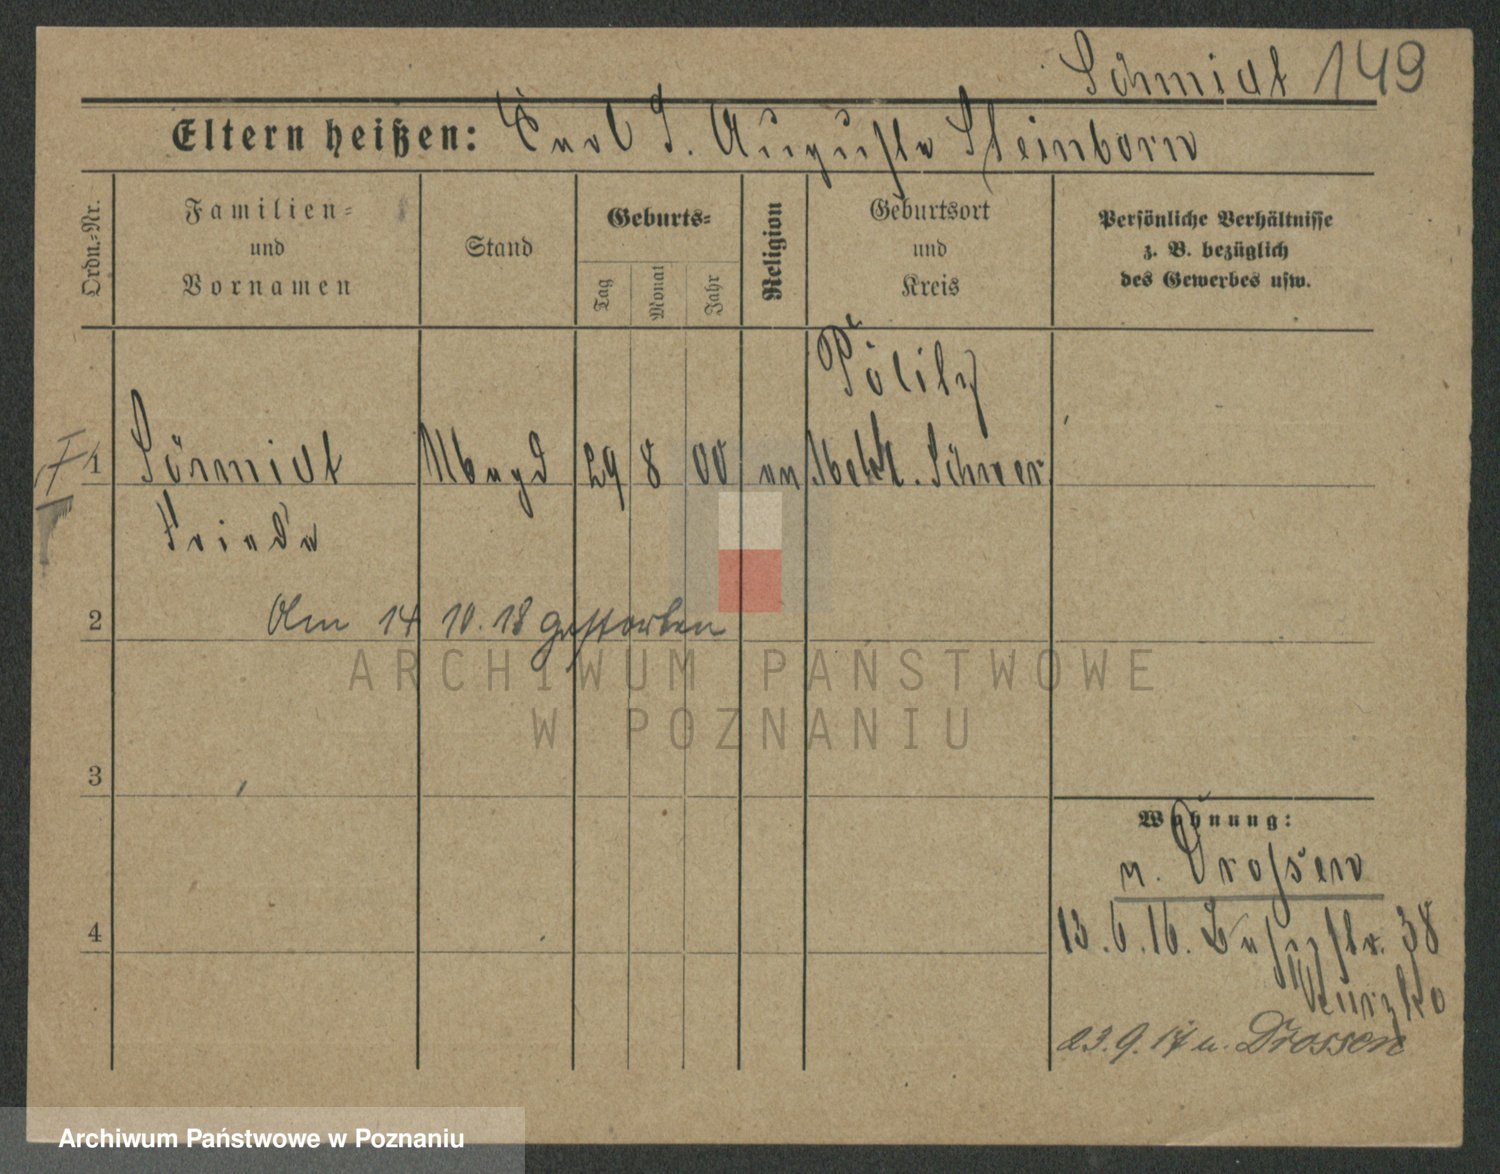 Schmidt 149
Eltern heißen: Carl u. Auguste Steinborn
Ordn.-Nr.
Familien-
und
Vornamen
Stand
Geburts-
Tag
Monat
Jahr
Religion
Geburtsort
und
Kreis
Persönliche Verhältnisse
z. B. bezüglich
des Gewerbes usw.
Pölitz
1 Schmidt Magd 29 8 00 Meckl. Schwer.
Frieda
2 Am 14 10. 18 gestorben
3
4
Wohnung:
v. Drossen
13. 6. 16. 38
23. 9. 17 n. Drossen
ARCHIWUM PAŃSTWOWE
W POZNANIU
Archiwum Państwowe w Poznaniu